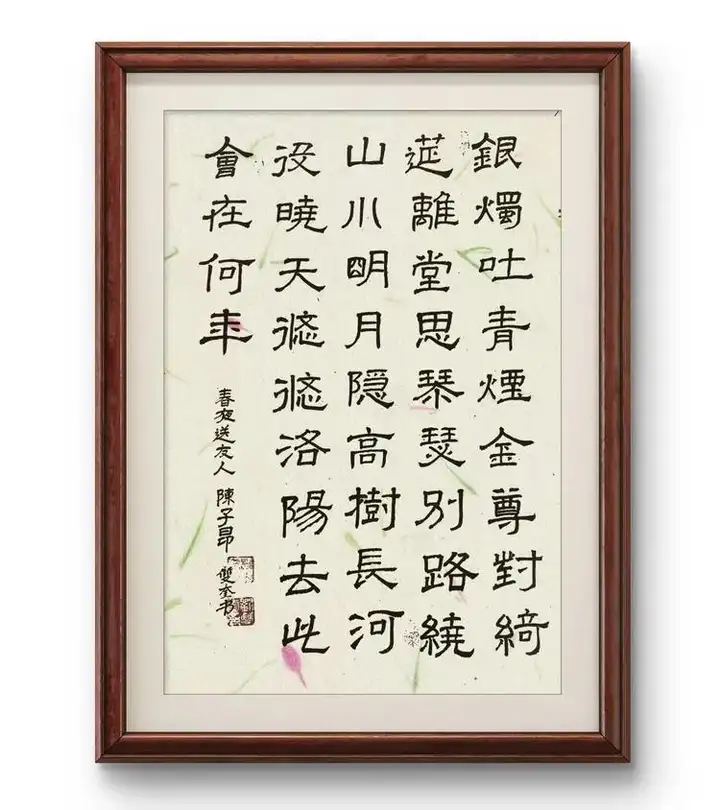 銀燭吐青煙金尊對綺
莚離堂思琴瑟別路繞
山川明月隱高樹長河
没曉天悠悠洛陽去此
會在何年
春夜送友人 陳子昂 雙奎书